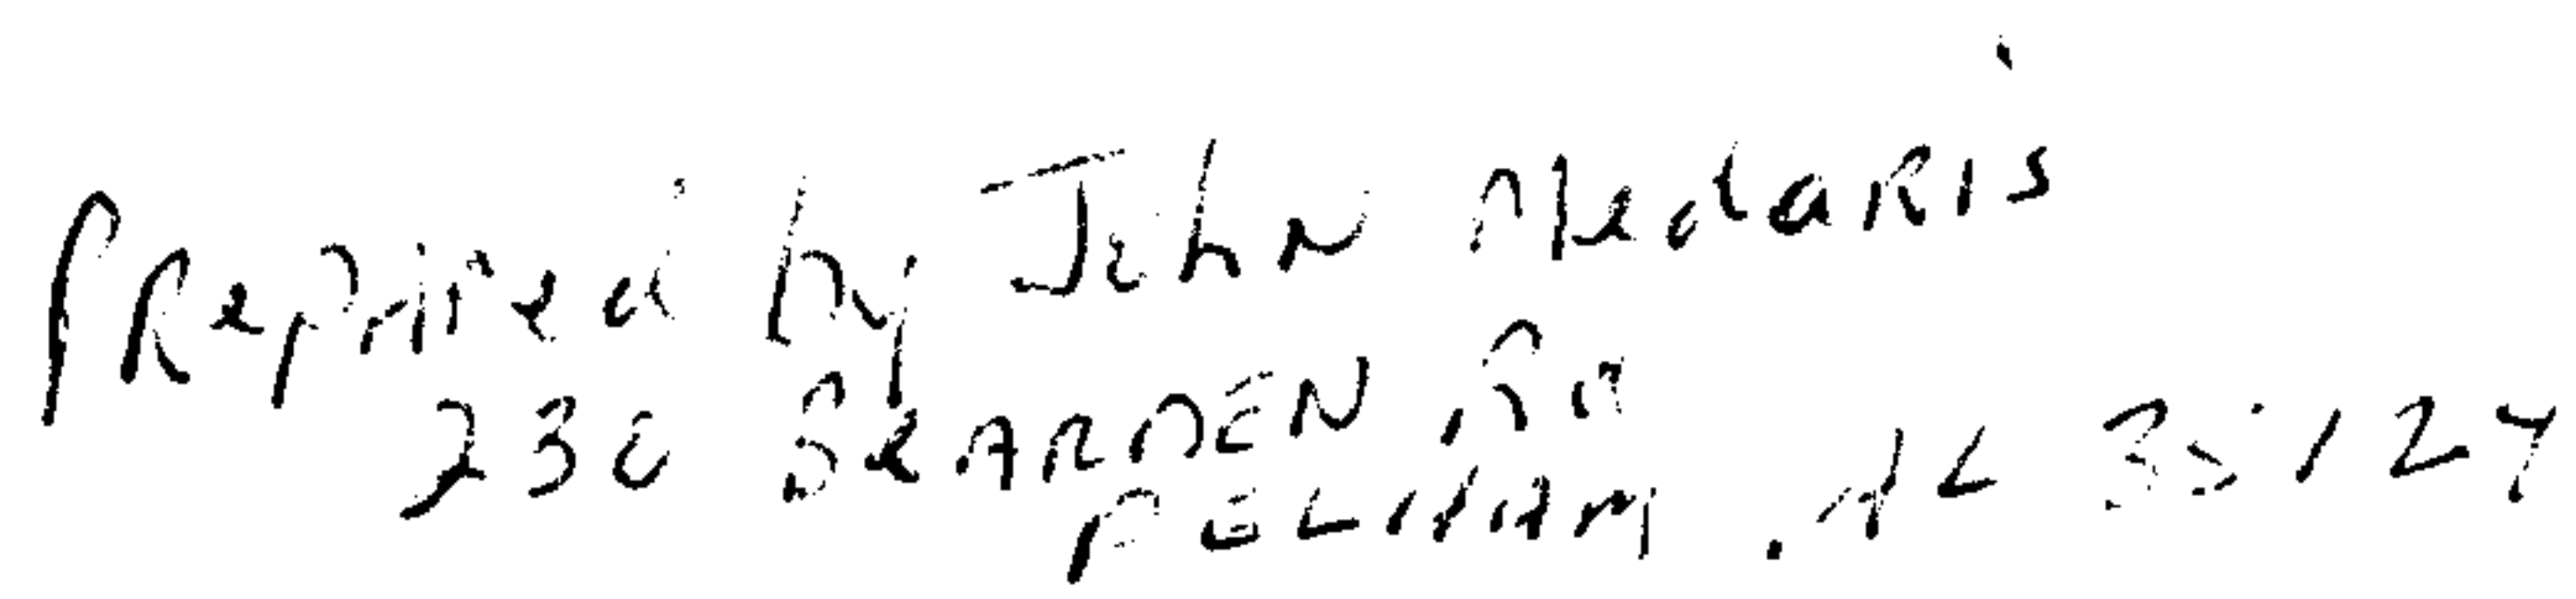 PRepAred by John MedaRis
230 BeARDEN Rd
PELHAM, AL 35124